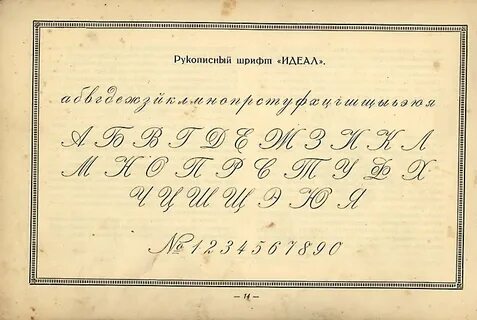 Рукописный шрифт «ИДЕАЛ».
абвгдежзйклмнопрстуфхцчшщыьэюя
А Б В Г Д Е Ж З И К Л
М Н О П Р С Т У Ф Х
Ч Ц Ш Щ Э Ю Я
№ 1 2 3 4 5 6 7 8 9 0
— 14 —